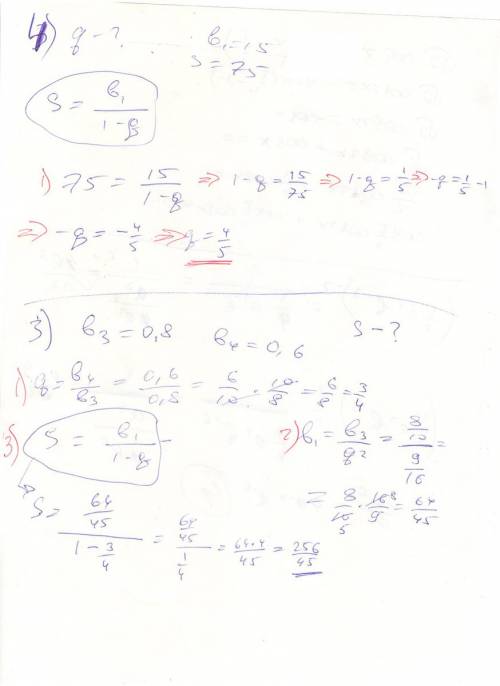 4) q - ? b₁ = 15
S = 75
S = b₁/(1-q)
1) 75 = 15/(1-q) => 1-q = 15/75 => 1-q = 1/5 => -q = 1/5 - 1
=> -q = -4/5 => q = 4/5
3) b₃ = 0,8 b₄ = 0,6 S - ?
1) q = b₄/b₃ = 0,6/0,8 = 6/10 · 10/8 = 6/8 = 3/4
2) b₁ = b₃/q² = (8/10)/(9/16) =
= 8/10 · 16/9 = 64/45
3) S = b₁/(1-q)
S = (64/45)/(1-3/4) = (64/45)/(1/4) = 64·4/45 = 256/45